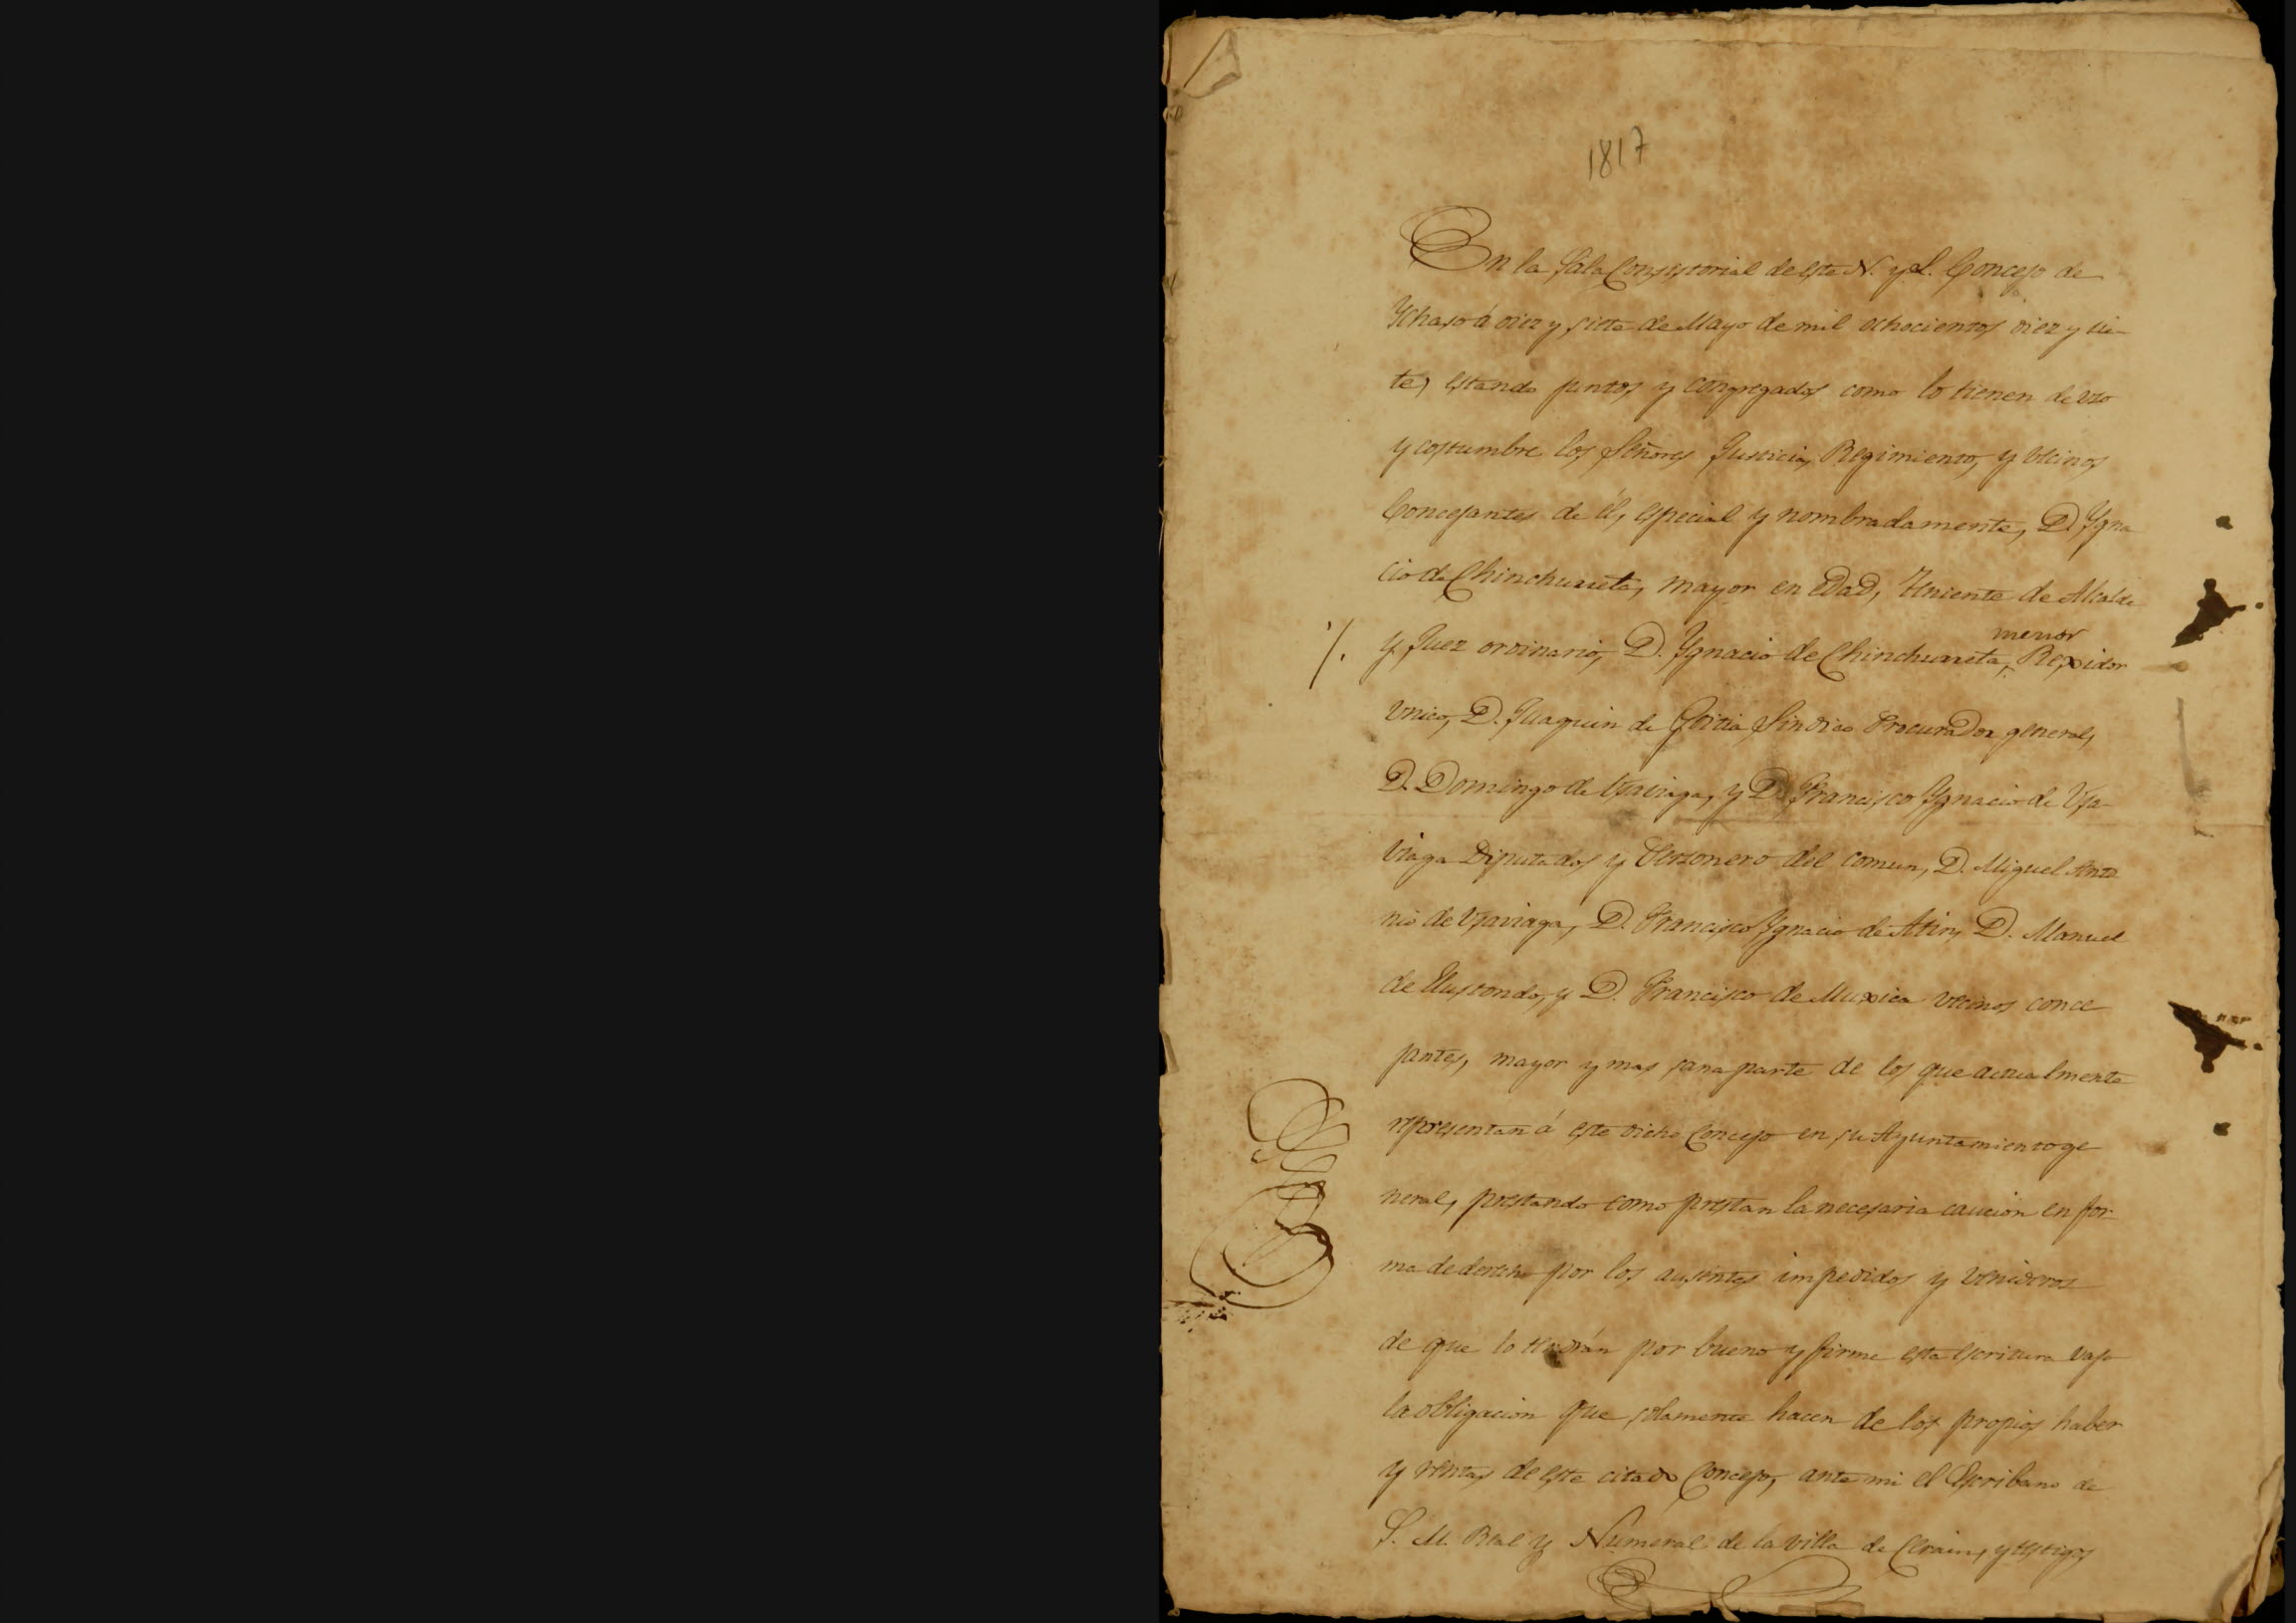 1817
En la Sala Consistorial de este N. y L. Concejo de
Ychaso á diez y siete de Mayo de mil ochocientos diez y sie-
te, estando juntos y congregados como lo tienen de uso
y costumbre los Señores Justicia, Regimiento, y vecinos
Concejantes de él, especial y nombradamente, D. Ygna
cio de Chinchurreta, mayor en edad, Theniente de Alcalde
y Juez ordinario, D. Ygnacio de Chinchurreta, menor Rexidor
vnico, D. Juaquin de Goitia Sindico Procurador general,
D. Domingo de Vsaviaga, y D. Francisco Ygnacio de Vsa-
viaga Diputados y Perzonero del comun, D. Miguel Anto
nio de Vsaviaga, D. Francisco Ygnacio de D. Manuel
de Elustondo, y D. Francisco de Muxica vecinos conce
jantes, mayor y mas sana parte de los que actualmente
representan á este dicho Concejo en su Ayuntamiento ge
neral, prestando como prestan la necesaria caucion en for-
ma de derecho por los ausentes impedidos y venideros
de que lo tendrán por bueno y firme esta escritura vajo
la obligacion que solamente hacen de los propios haber
y rentas de este citado Concejo, ante mi el Escribano de
S. M. Real y Numeral de la villa de Cerain, y testigos